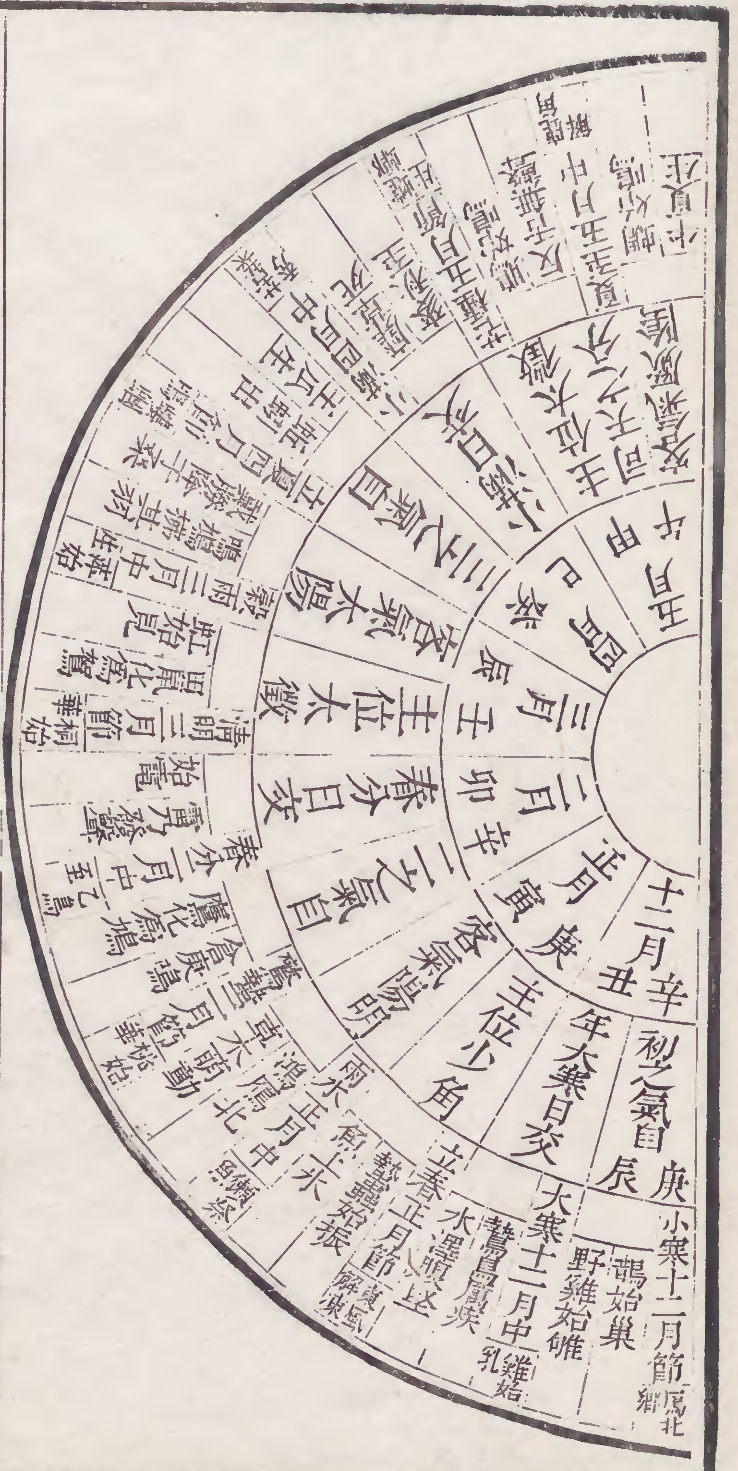 十二月
辛丑
正月
庚寅
二月
辛卯
三月
壬辰
四月
癸巳
五月
甲午
初之氣自庚辰
年大寒日交
主位少角
客氣陽明
二之氣自
春分日交
主位太徵
客氣太陽
三之氣自
小滿日交
主位太徵
司天之分
客氣厥陰
小寒十二月節 鴈北鄉
鵲始巢
野雞始雊
大寒十二月中 雞始乳
鷙鳥厲疾
水澤腹堅
立春正月節 東風解凍
蟄蟲始振
魚上冰
雨水正月中 獺祭魚
鴻鴈北
草木萌動
驚蟄二月節 桃始華
倉庚鳴
鷹化為鳩
春分二月中 乙鳥至
雷乃發聲
始電
清明三月節 桐始華
田鼠化為鴽
虹始見
穀雨三月中 萍始生
鳴鳩拂其羽
戴勝降于桑
立夏四月節 螻蟈鳴
蚯蚓出
王瓜生
小滿四月中 苦菜秀
靡草死
麥秋至
芒種五月節 螳蜋生
鵙始鳴
反舌無聲
夏至五月中 鹿角解
蜩始鳴
半夏生